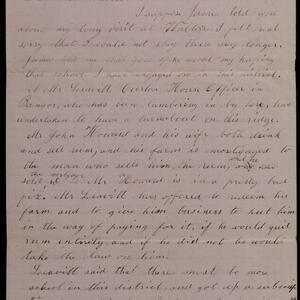 I suppose James told you
about my long visit at I felt not
sorry that I could not stay there any longer.
James told me that you spoke about my keeping
that school. I have engaged one in this district.
A Mr Leavitt Custom House Officer in
Bangor, who has been lumbering in by here, has
undertaken to have a turnabout on this ridge.
Mr John Howard and his wife both drink
and sell rum, and his farm is mortgaged
to the man who sells them the rum, and he
the mortgage
sold it to Mr Howard is in a pretty bad
fix. Mr Leavitt has offered to redeem his
farm and to give him business to put him
in the way of paying for it, if he would quit
rum entirely and if he did not he would
take the law on him.
Leavitt said that there must be more
school in this district, and got up a subscrip